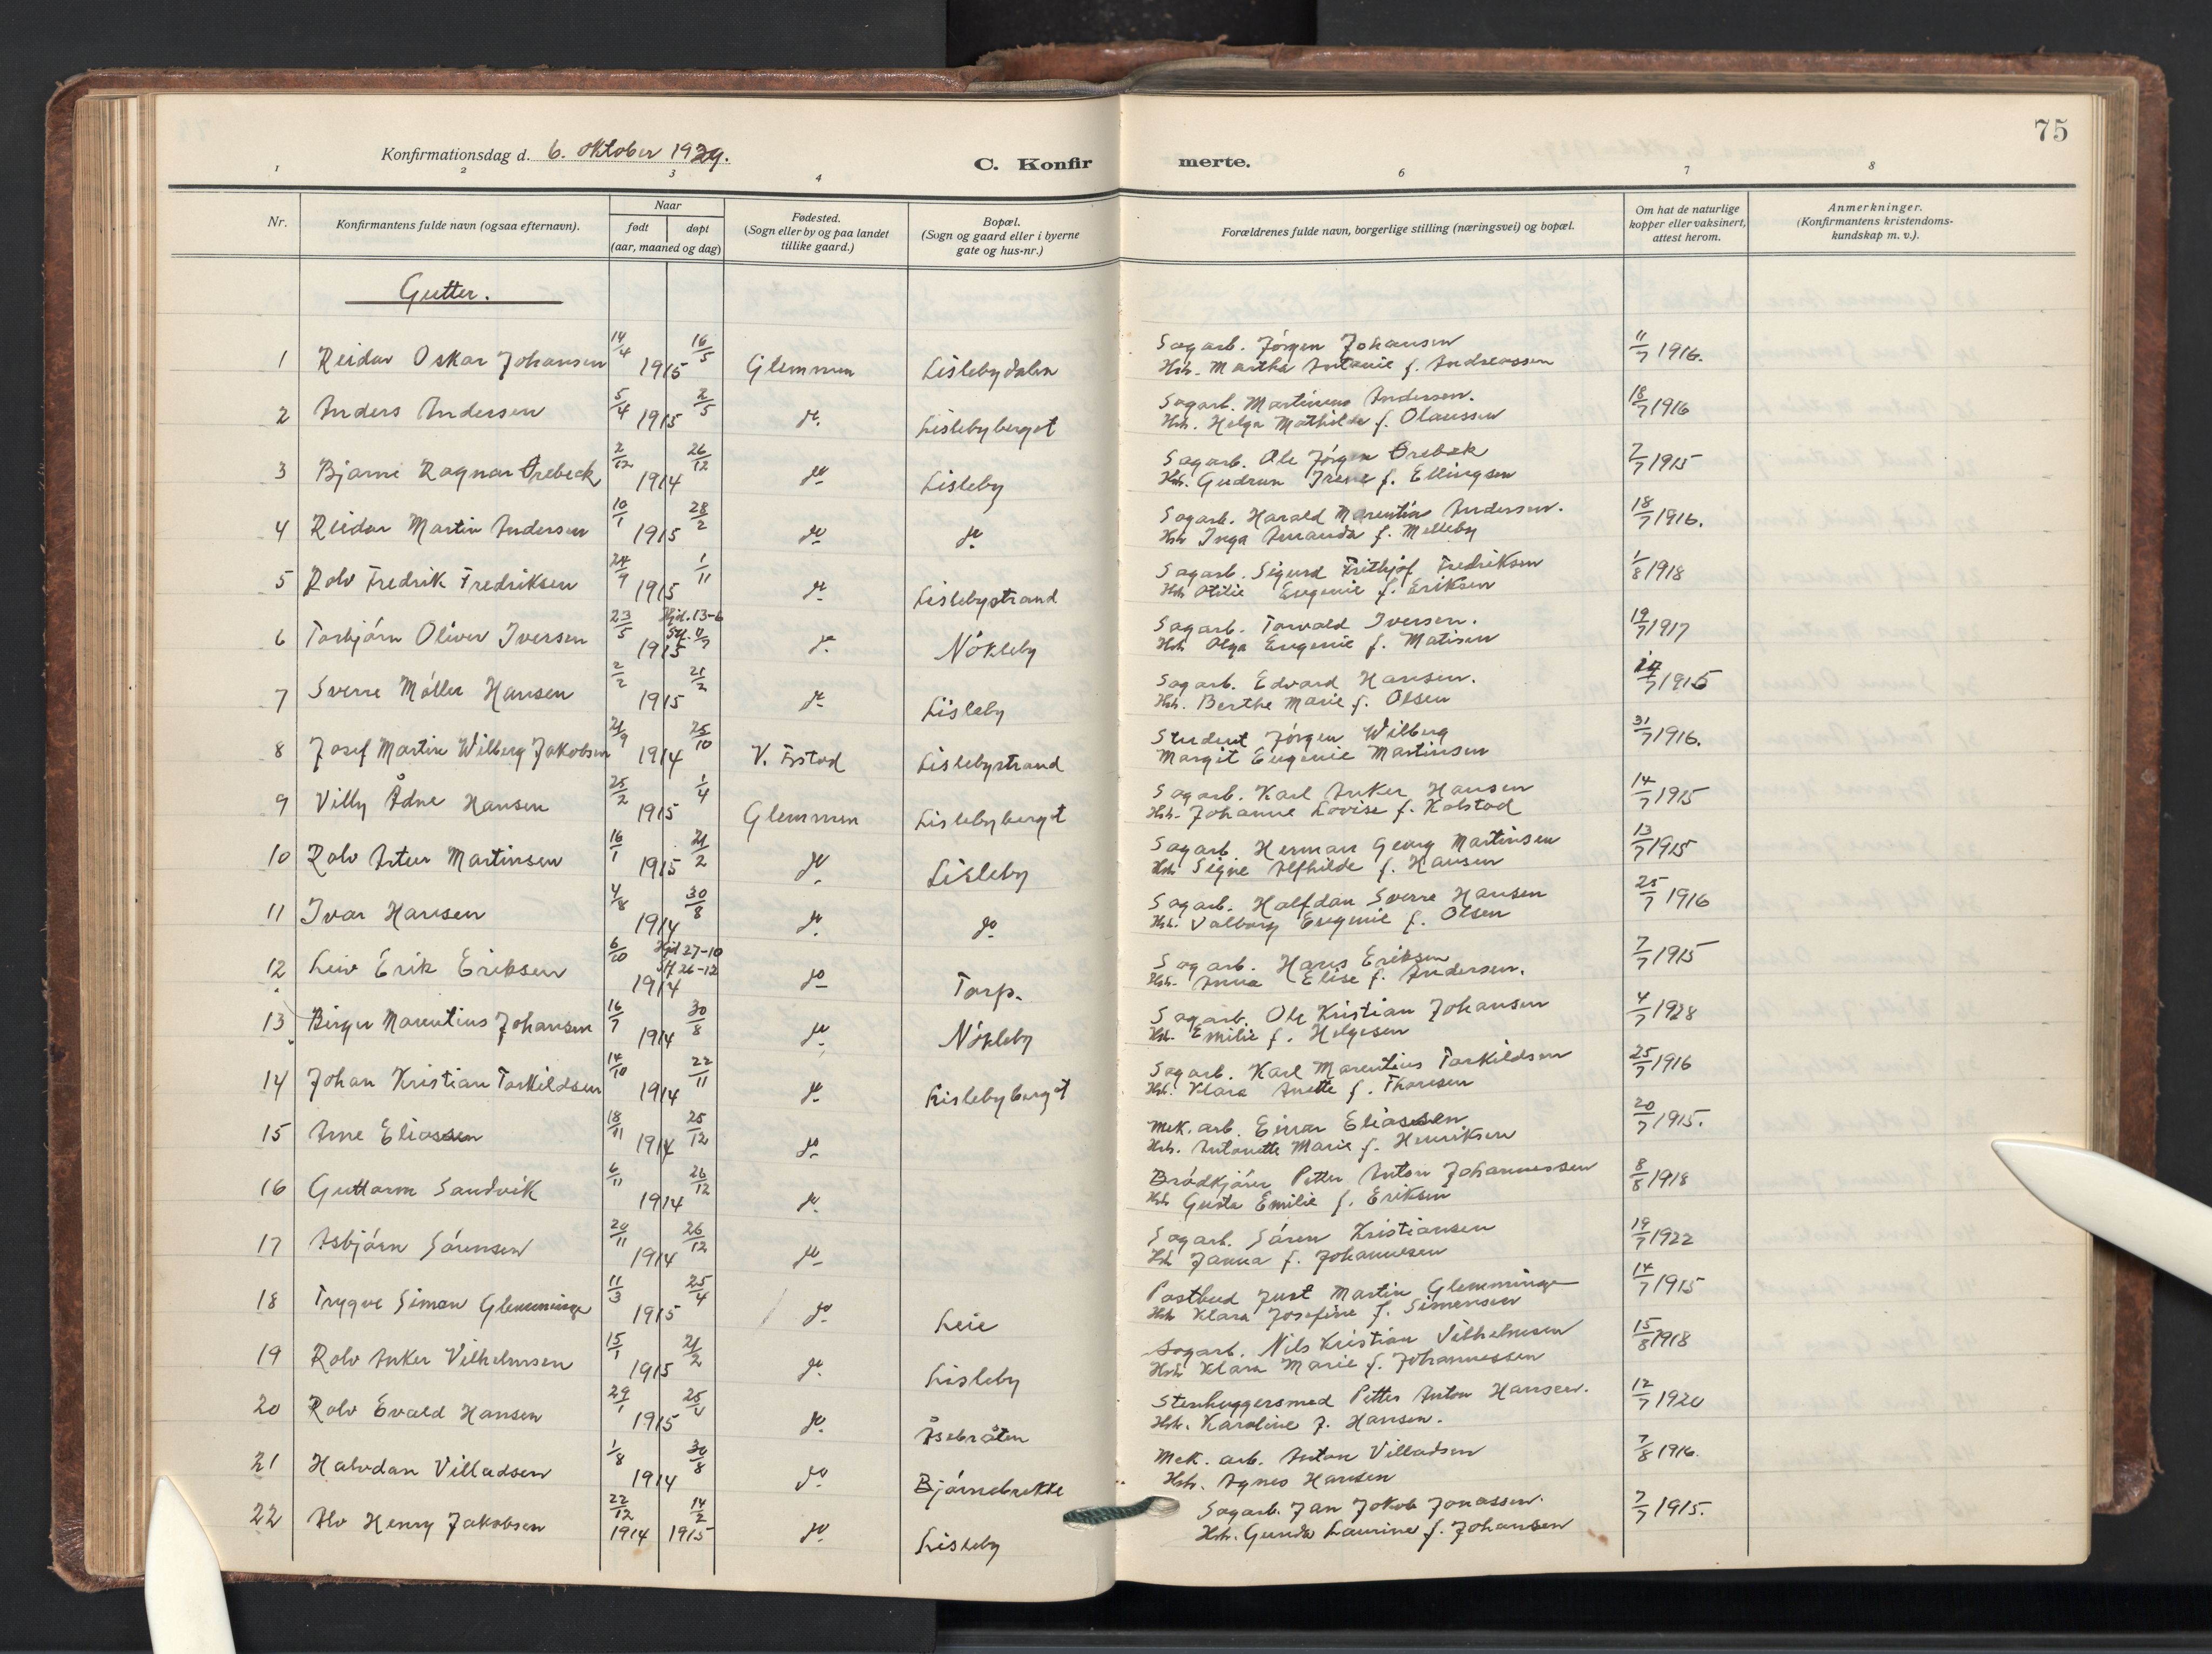 75
Konfirmationsdag d. 6. oktober 1929.
C. Konfir merte.
1 2 3 4 6 7 8
Nr.
Konfirmantens fulde navn (ogsaa efternavn).
Naar
født døpt
(aar, maaned og dag)
Fødested.
(Sogn eller by og paa landet
tillike gaard.)
Bopæl.
(Sogn og gaard eller i byerne
gate og hus-nr.)
Forældrenes fulde navn, borgerlige stilling (næringsvei) og bopæl.
Om hat de naturlige
kopper eller vaksinert,
attest herom.
Anmerkninger.
(Konfirmantens kristendoms-
kundskap m. v.).
Gutter.
1 Reidar Oskar Johansen 14/4 1915 16/5 Glemmen Lislebydalen Sagarb. Jørgen Johansen 11/7 1916.
Hst. Martha Antonie f. Andreassen
2 Anders Andersen 5/4 1915 2/5 do. Lislebyberget Sagarb. Martinius Andersen. 18/7 1916
Hst. Helga Mathilde f. Olaussen
3 Bjarne Ragnar Ørebeck 2/12 1914 26/12 do Lisleby Sagarb. Ole Jørgen Ørebæk 7/7 1915
Hst. Gudrun Irene f. Ellingsen
4 Reidar Martin Andersen 10/1 1915 28/2 do do Sagarb. Harald Marentius Andersen. 18/7 1916.
Hst Inga Amanda f. Melleby
5 Rolv Fredrik Fredriksen 24/9 1915 1/11 do Lislebystrand Sagarb. Sigurd Frithjof Fredriksen 1/8 1918
Hst Otilie Eugenie f. Eriksen
6 Torbjørn Oliver Iversen 23/5 1915 Hjd. 13-6 Stf. 11/7 do. Nøkleby Sagarb. Torvald Iversen. 19/7 1917
Hst Olga Eugenie f. Matisen
7 Sverre Møller Hansen 2/2 1915 21/2 do Lisleby Sagarb. Edvard Hansen.
Hst. Berthe Marie f. Olsen
8 Josef Martin Wilberg Jakobsen 21/9 1914 25/10 Lislebystrand Student Jørgen Wilberg 31/7 1916.
Margit Eugenie Martinsen
9 Villy Ådne Hansen 25/2 1915 1/4 Glemmen Lislebyberget Sagarb. Karl Anker Hansen 14/7 1915
Hst. Johanne Lovise f. Kolstad
10 Rolv Artur Martinsen 16/1 1915 21/2 do Lisleby Sagarb. Herman Georg Martinsen 13/7 1915
Hst Signe Alfhilde f. Hansen
11 Ivar Hansen 4/8 1914 30/8 do. do Sagarb. Halfdan Sverre Hansen 25/7 1916
Hst. Valborg Eugenie f. Olsen
12 Leiv Erik Eriksen 6/10 1914 Hjd 27-10 Stf 26-12 do Torp. Sagarb. Hans Eriksen 7/7 1915
Hst. Anna Elise f. Andersen.
13 Birger Marentius Johansen 16/7 1914 30/8 do Nøkleby Sagarb. Ole Kristian Johansen 4/7 1928
Hst. Emilie f. Helgesen
14 Johan Kristian Torkildsen 14/10 1914 22/11 do Lislebyberget Sagarb. Karl Marentius Torkildsen 25/7 1916
Hst. Klara Anette f. Thoresen
15 Arne Eliassen 18/11 1914 25/12 do Mek. arb. Einar Eliassen 20/7 1915.
Hst. Antonette Marie f. Henriksen
16 Guttorm Sandvik 6/11 1914 26/12 do. Brødkjører Petter Anton Johannessen 8/8 1918
Hst Gusta Emilie f. Eriksen
17 Asbjørn Sørensen 20/11 1914 26/12 do Sagarb. Søren Kristiansen 19/7 1922
Hst Janna f. Johannesen
18 Trygve Simen Glemminge 11/3 1915 25/4 do. Leie Postbud Just Martin Glemminge 14/7 1915
Hst Klara Josefine f. Simensen
19 Rolv Anker Vilhelmsen 15/1 1915 21/2 do. Lisleby Sagarb. Nils Kristian Vilhelmsen 15/8 1918
Hst Klara Marie f. Johannessen
20 Rolv Evald Hansen 29/1 1915 25/4 do. Åsebråten Stenhuggersmed Petter Anton Hansen. 12/7 1920
Hst. Karoline f. Hansen.
21 Halvdan Villadsen 1/8 1914 30/8 do. Bjørnebrekke Mek. arb. Anton Villadsen 7/8 1916.
Hst. Agnes Hansen
22 Alv Henry Jakobsen 22/12 1914 14/2 1915 do Lisleby Sagarb. Jan Jakob Jonassen. 7/7 1915.
Hst. Gunda Laurine f. Johansen